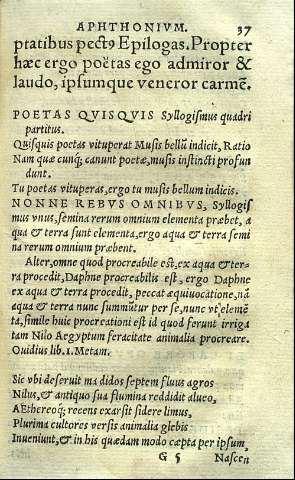 APHTHONIVM. 37
ptatibus pectꝰ Epilogas. Propter
hæc ergo poëtas ego admiror &
laudo, ipsumque veneror carmē.
POETAS QVISQVIS Syllogismus quadri
partitus.
Quisquis poetas vituperat Musis bellū indicit, Ratio
Nam quæ cunq; canunt poetæ, musis instincti profun
dunt.
Tu poetas vituperas, ergo tu musis bellum indicis.
NONNE REBVS OMNIBVS, Syllogis
mus vnus, semina rerum omnium elementa præbet, a
qua & terra sunt elementa, ergo aqua & terra semi
na rerum omnium præbent.
Alter, omne quod procreabile est, ex aqua & ter-
ra procedit, Daphne procreabilis est, ergo Daphne
ex aqua & terra procedit, peccat æquiuocatione, nā
aqua & terra nunc summūtur per se, nunc vt elemē
ta, simile huic procreationi est id quod ferunt irriga
tam Nilo Aegyptum feracitate animalia procreare.
Ouidius lib. 1. Metam.
Sic vbi deseruit madidos septem fluus agros
Nilus, & antiquo sua flumina reddidit alueo,
AEthereoq; recens exarsit sidere limus,
Plurima cultores versis animalia glebis
Inueniunt, & in his quædam modo cæpta per ipsum
G 5 Nascen